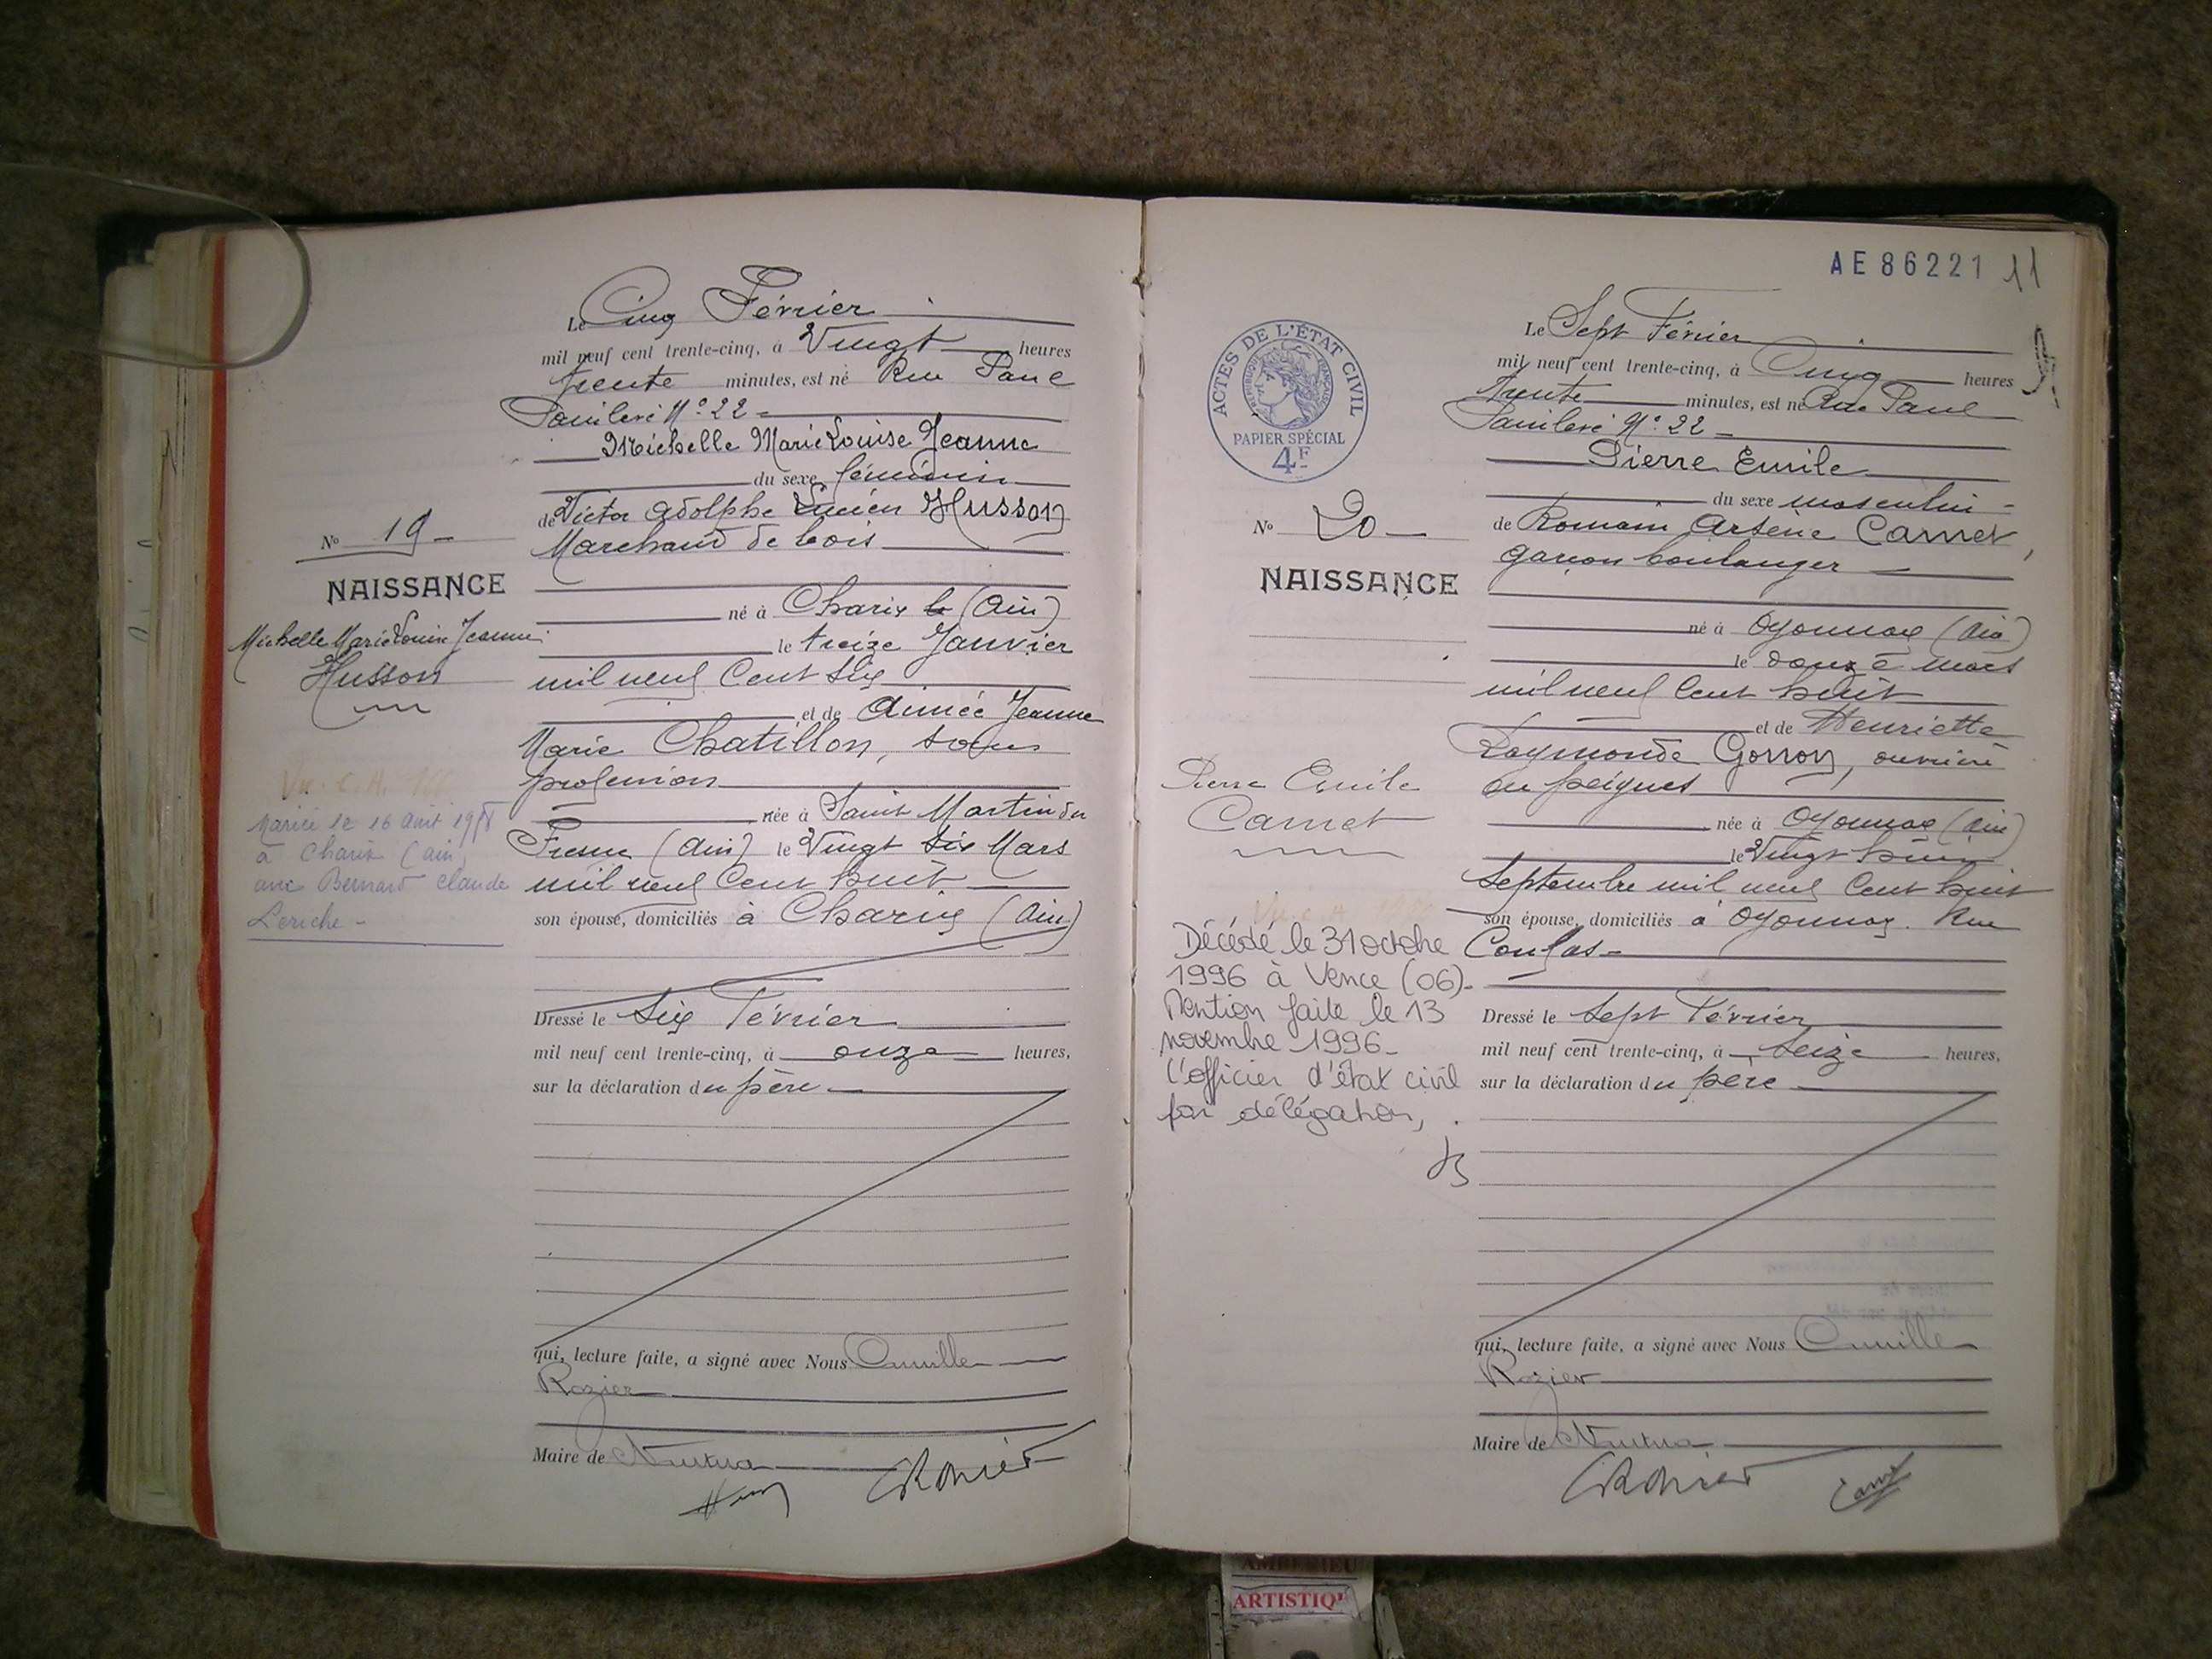 Le Cinq Février
mil neuf cent trente-cinq, à Vingt heures
trente minutes, est né Rue Paul
Painlevé N° 22
Michelle Marie Louise Jeanne
du sexe féminin
de Victor Adolphe Lucien Husson
Marchand de bois
né à Charix (Ain)
le treize Janvier
mil neuf Cent Six
et de Aimée Jeanne
Marie Chatillon, sans
profession
née à Saint Martin du
Fresne (Ain) le Vingt Six Mars
mil neuf Cent huit
son épouse, domiciliés à Charix (Ain)
Dressé le Six Février
mil neuf cent trente-cinq, à onze heures,
sur la déclaration du père
qui, lecture faite, a signé avec Nous Camille
Rozier
Maire de Nantua
N° 19
NAISSANCE
Michelle Marie Louise Jeanne
Husson
Mariée le 16 août
à Charix (Ain)
avec Bernard Claude
Leriche
AE 86221 11
ACTES DE L'ÉTAT CIVIL
RÉPUBLIQUE FRANÇAISE
PAPIER SPÉCIAL
4F
Le Sept Février
mil neuf cent trente-cinq, à Cinq heures
trente minutes, est né Rue Paul
Painlevé N° 22
Pierre Emile
du sexe masculin
de Romain Arsène Carnet,
garçon boulanger
né à Oyonnax (Ain)
le douze mars
mil neuf Cent huit
et de Henriette
Raymonde Gorron, ouvrière
en peignes
née à Oyonnax (Ain)
le Vingt huit
Septembre mil neuf Cent huit
son épouse, domiciliés à Oyonnax. Rue
Dressé le Sept Février
mil neuf cent trente-cinq, à Seize heures,
sur la déclaration du père
qui, lecture faite, a signé avec Nous Camille
Rozier
Maire de Nantua
N° 20
NAISSANCE
Pierre Emile
Carnet
Décédé le 31 octobre
1996 à Vence (06).
Mention faite le 13
novembre 1996.
L'officier d'état civil
par délégation,
AMBERIEU
ARTISTIQ